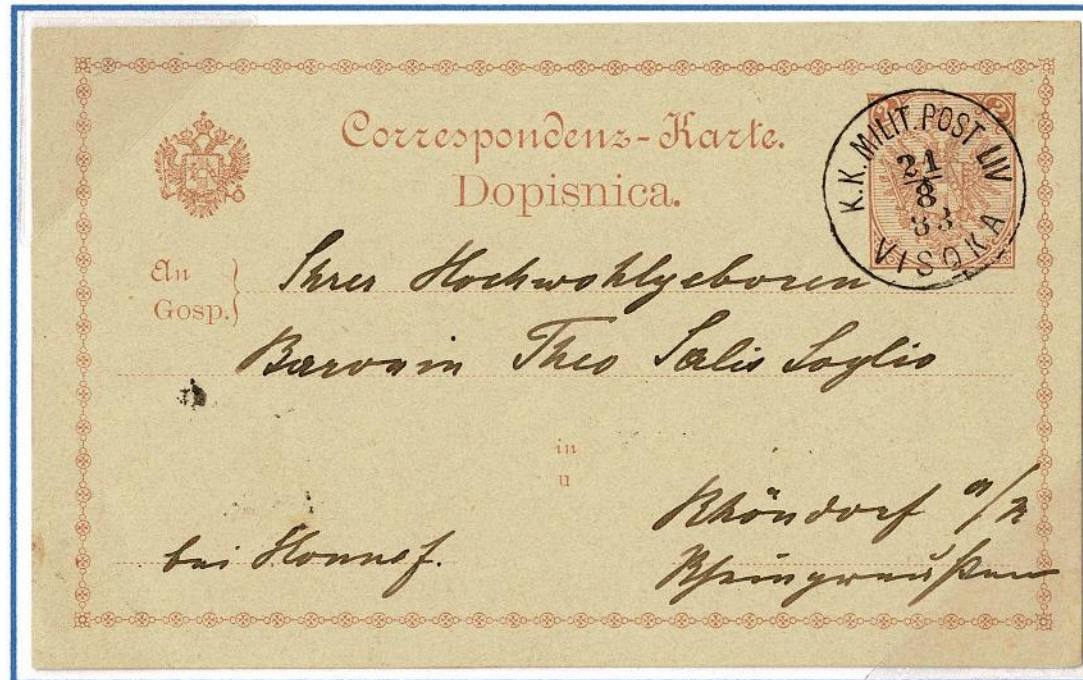 Correspondenz-Karte.
Dopisnica.
2 2
K.K. MILIT. POST LIV
21
8
83
VISOKA
An
Gosp.
Ihrer Hochwohlgeboren
Baronin Theo Salis Soglio
in
u
Rhöndorf a/R
bei Honnef.
Rheinpreußen